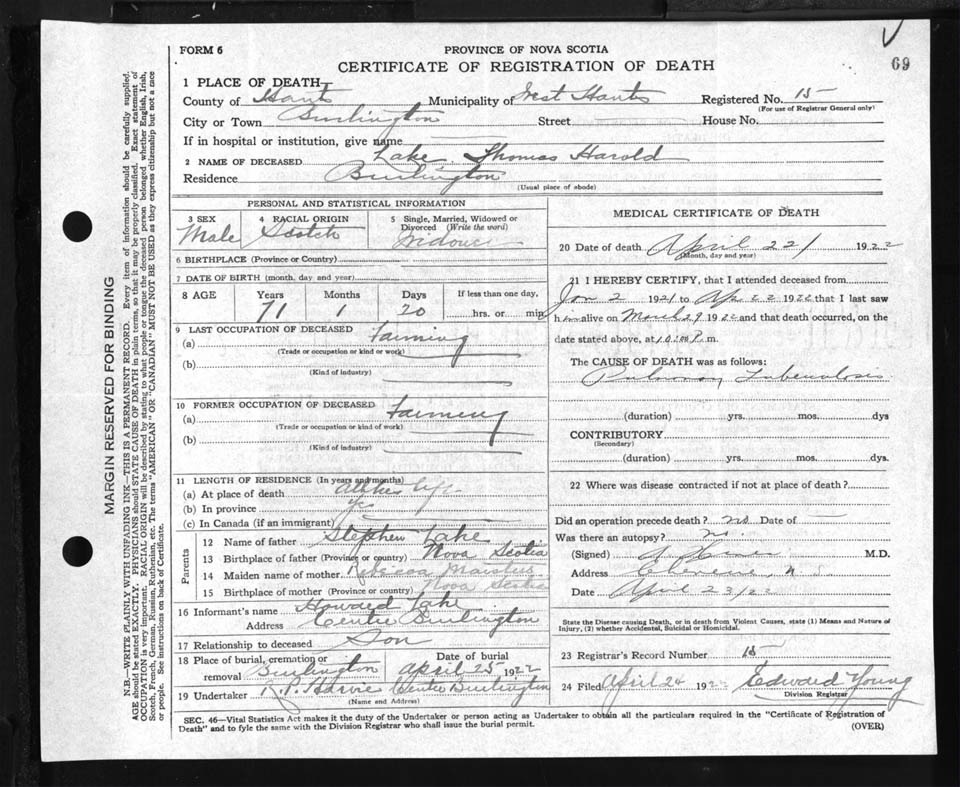 FORM 6
PROVINCE OF NOVA SCOTIA
69
CERTIFICATE OF REGISTRATION OF DEATH
1 PLACE OF DEATH
County of Hants Municipality of West Hants Registered No. 15
(For use of Registrar General only)
City or Town Burlington Street House No.
If in hospital or institution, give name
2 NAME OF DECEASED Lake Thomas Harold
Residence Burlington
(Usual place of abode)
PERSONAL AND STATISTICAL INFORMATION
3 SEX 4 RACIAL ORIGIN 5 Single, Married, Widowed or Divorced (Write the word)
Male Scotch
6 BIRTHPLACE (Province or Country)
7 DATE OF BIRTH (month, day and year)
8 AGE Years Months Days If less than one day,
71 1 20 hrs. or min
9 LAST OCCUPATION OF DECEASED
(a) Farming
(Trade or occupation or kind or work)
(b)
(Kind of industry)
10 FORMER OCCUPATION OF DECEASED
(a) Farming
(Trade or occupation or kind of work)
(b)
(Kind of industry)
11 LENGTH OF RESIDENCE (In years and months)
(a) At place of death life
(b) In province
(c) In Canada (if an immigrant)
Parents
12 Name of father Stephen Lake
13 Birthplace of father (Province or country) Nova Scotia
14 Maiden name of mother Rebecca
15 Birthplace of mother (Province or country) Nova Scotia
16 Informant's name Howard Lake
Address Centre Burlington
17 Relationship to deceased Son
18 Place of burial, cremation or removal Burlington Date of burial April 25 1922
19 Undertaker R.P. Harvie Centre Burlington
(Name and Address)
MEDICAL CERTIFICATE OF DEATH
20 Date of death April 22 1922
(Month, day and year)
21 I HEREBY CERTIFY, that I attended deceased from
Jan 2 1921 to Ap 22 1922 that I last saw
him alive on March 29 1922 and that death occurred, on the
date stated above, at 10 P. m.
The CAUSE OF DEATH was as follows:
Pulmonary Tuberculosis
(duration) yrs. mos. dys
CONTRIBUTORY
(Secondary)
(duration) yrs. mos. dys.
22 Where was disease contracted if not at place of death?
Did an operation precede death? no Date of
Was there an autopsy? no.
(Signed) M.D.
Address N.S.
Date April 23/22
State the Disease causing Death, or in death from Violent Causes, state (1) Means and Nature of
Injury, (2) whether Accidental, Suicidal or Homicidal.
23 Registrar's Record Number 15
24 Filed April 24 1922 Edward Young
Division Registrar
SEC. 46—Vital Statistics Act makes it the duty of the Undertaker or person acting as Undertaker to obtain all the particulars required in the "Certificate of Registration of
Death" and to fyle the same with the Division Registrar who shall issue the burial permit.
(OVER)
MARGIN RESERVED FOR BINDING
N.B.—WRITE PLAINLY WITH UNFADING INK—THIS IS A PERMANENT RECORD. Every item of information should be carefully supplied.
AGE should be stated EXACTLY. PHYSICIANS should STATE CAUSE OF DEATH in plain terms, so that it may be properly classified. Exact statement of
OCCUPATION is very important. RACIAL ORIGIN will be described by stating to what people or tongue the deceased person belonged whether English, Irish,
Scotch, French, German, Russian, Ruthenian, etc. The terms "AMERICAN" OR "CANADIAN" MUST NOT BE USED as they express citizenship but not a race
or people. See instructions on back of Certificate.